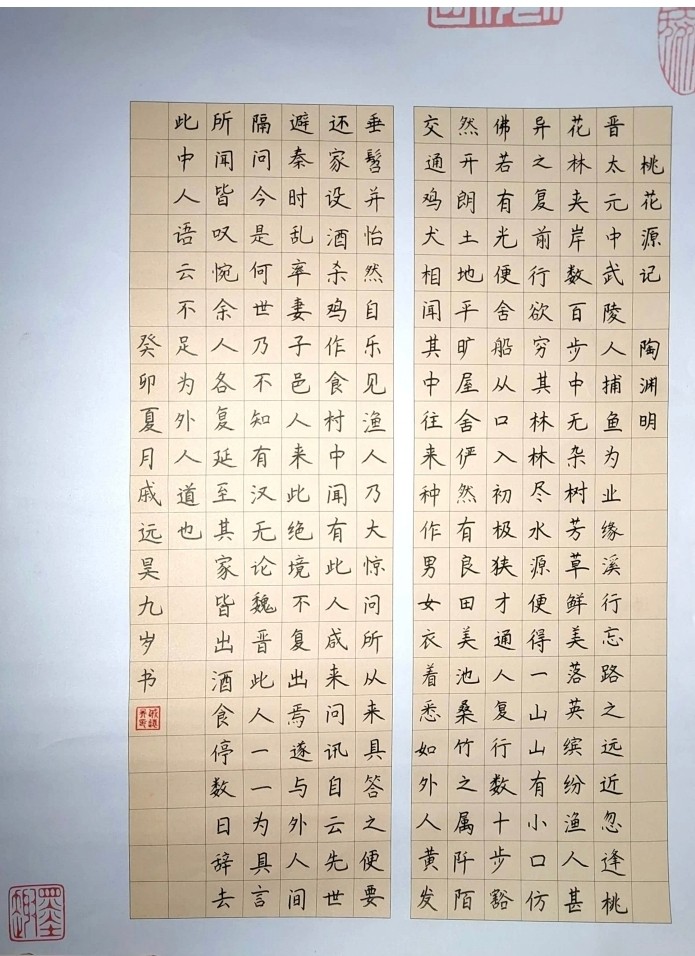 桃花源记 陶渊明
晋太元中武陵人捕鱼为业缘溪行忘路之远近忽逢桃
花林夹岸数百步中无杂树芳草鲜美落英缤纷渔人甚
异之复前行欲穷其林林尽水源便得一山山有小口仿
佛若有光便舍船从口入初极狭才通人复行数十步豁
然开朗土地平旷屋舍俨然有良田美池桑竹之属阡陌
交通鸡犬相闻其中往来种作男女衣着悉如外人黄发
垂髫并怡然自乐见渔人乃大惊问所从来具答之便要
还家设酒杀鸡作食村中闻有此人咸来问讯自云先世
避秦时乱率妻子邑人来此绝境不复出焉遂与外人间
隔问今是何世乃不知有汉无论魏晋此人一一为具言
所闻皆叹惋余人各复延至其家皆出酒食停数日辞去
此中人语云不足为外人道也
癸卯夏月戚远昊九岁书